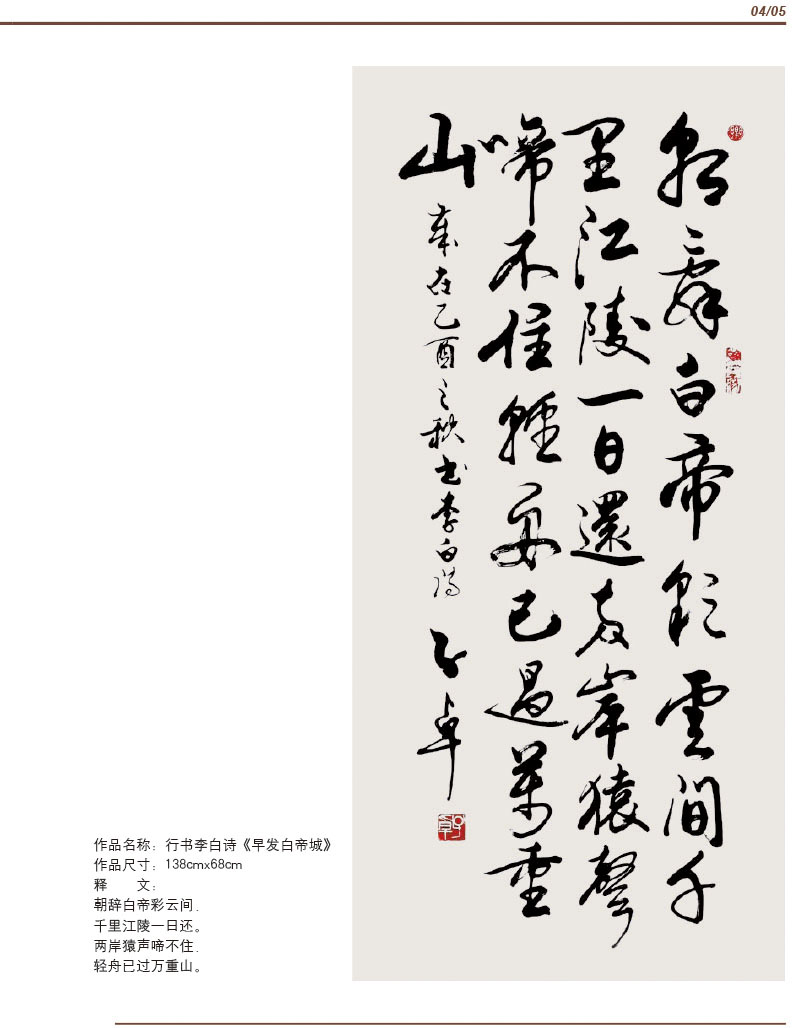 04/05
朝辭白帝彩雲間千
里江陵一日還兩岸猿聲
啼不住輕舟已過萬重
山 歲在乙酉之秋书李白詩 子卓
作品名称：行书李白诗《早发白帝城》
作品尺寸：138cmx68cm
释　　文：
朝辞白帝彩云间，
千里江陵一日还。
两岸猿声啼不住，
轻舟已过万重山。